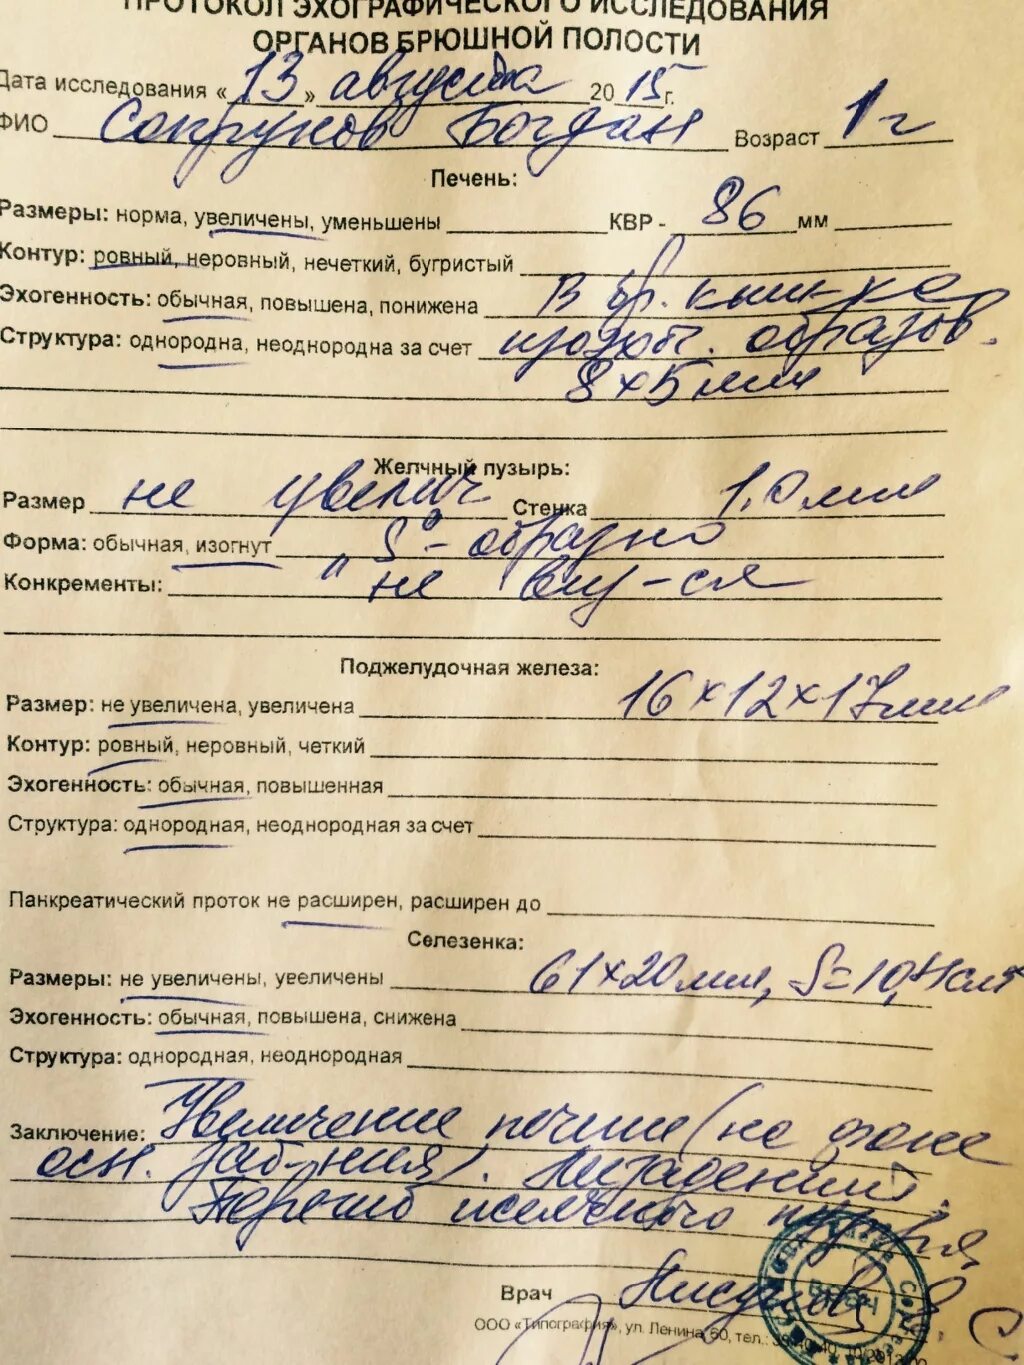 ПРОТОКОЛ ЭХОГРАФИЧЕСКОГО ИССЛЕДОВАНИЯ
ОРГАНОВ БРЮШНОЙ ПОЛОСТИ
Дата исследования « 13 » августа 2015 г.
ФИО Сопрунов Богдан Возраст 1 г
Печень:
Размеры: норма, увеличены, уменьшены КВР - 86 мм
Контур: ровный, неровный, нечеткий, бугристый
Эхогенность: обычная, повышена, понижена В бр.
Структура: однородна, неоднородна за счет изоэхог. образов.
8х5 мм
Желчный пузырь:
Размер не увелич Стенка 1,0 мм
Форма: обычная, изогнут S - образно
Конкременты: не виз-ся
Поджелудочная железа:
Размер: не увеличена, увеличена 16х12х17мм
Контур: ровный, неровный, четкий
Эхогенность: обычная, повышенная
Структура: однородная, неоднородная за счет
Панкреатический проток не расширен, расширен до
Селезенка:
Размеры: не увеличены, увеличены 61х20мм, S=10,4см²
Эхогенность: обычная, повышена, снижена
Структура: однородная, неоднородная
Заключение: Увеличение печени (на фоне
осн. заб-ния). Мезаденит.
Перегиб желчного пузыря
Врач
ООО «Типография», ул. Ленина, 60, тел.:
ВРАЧ